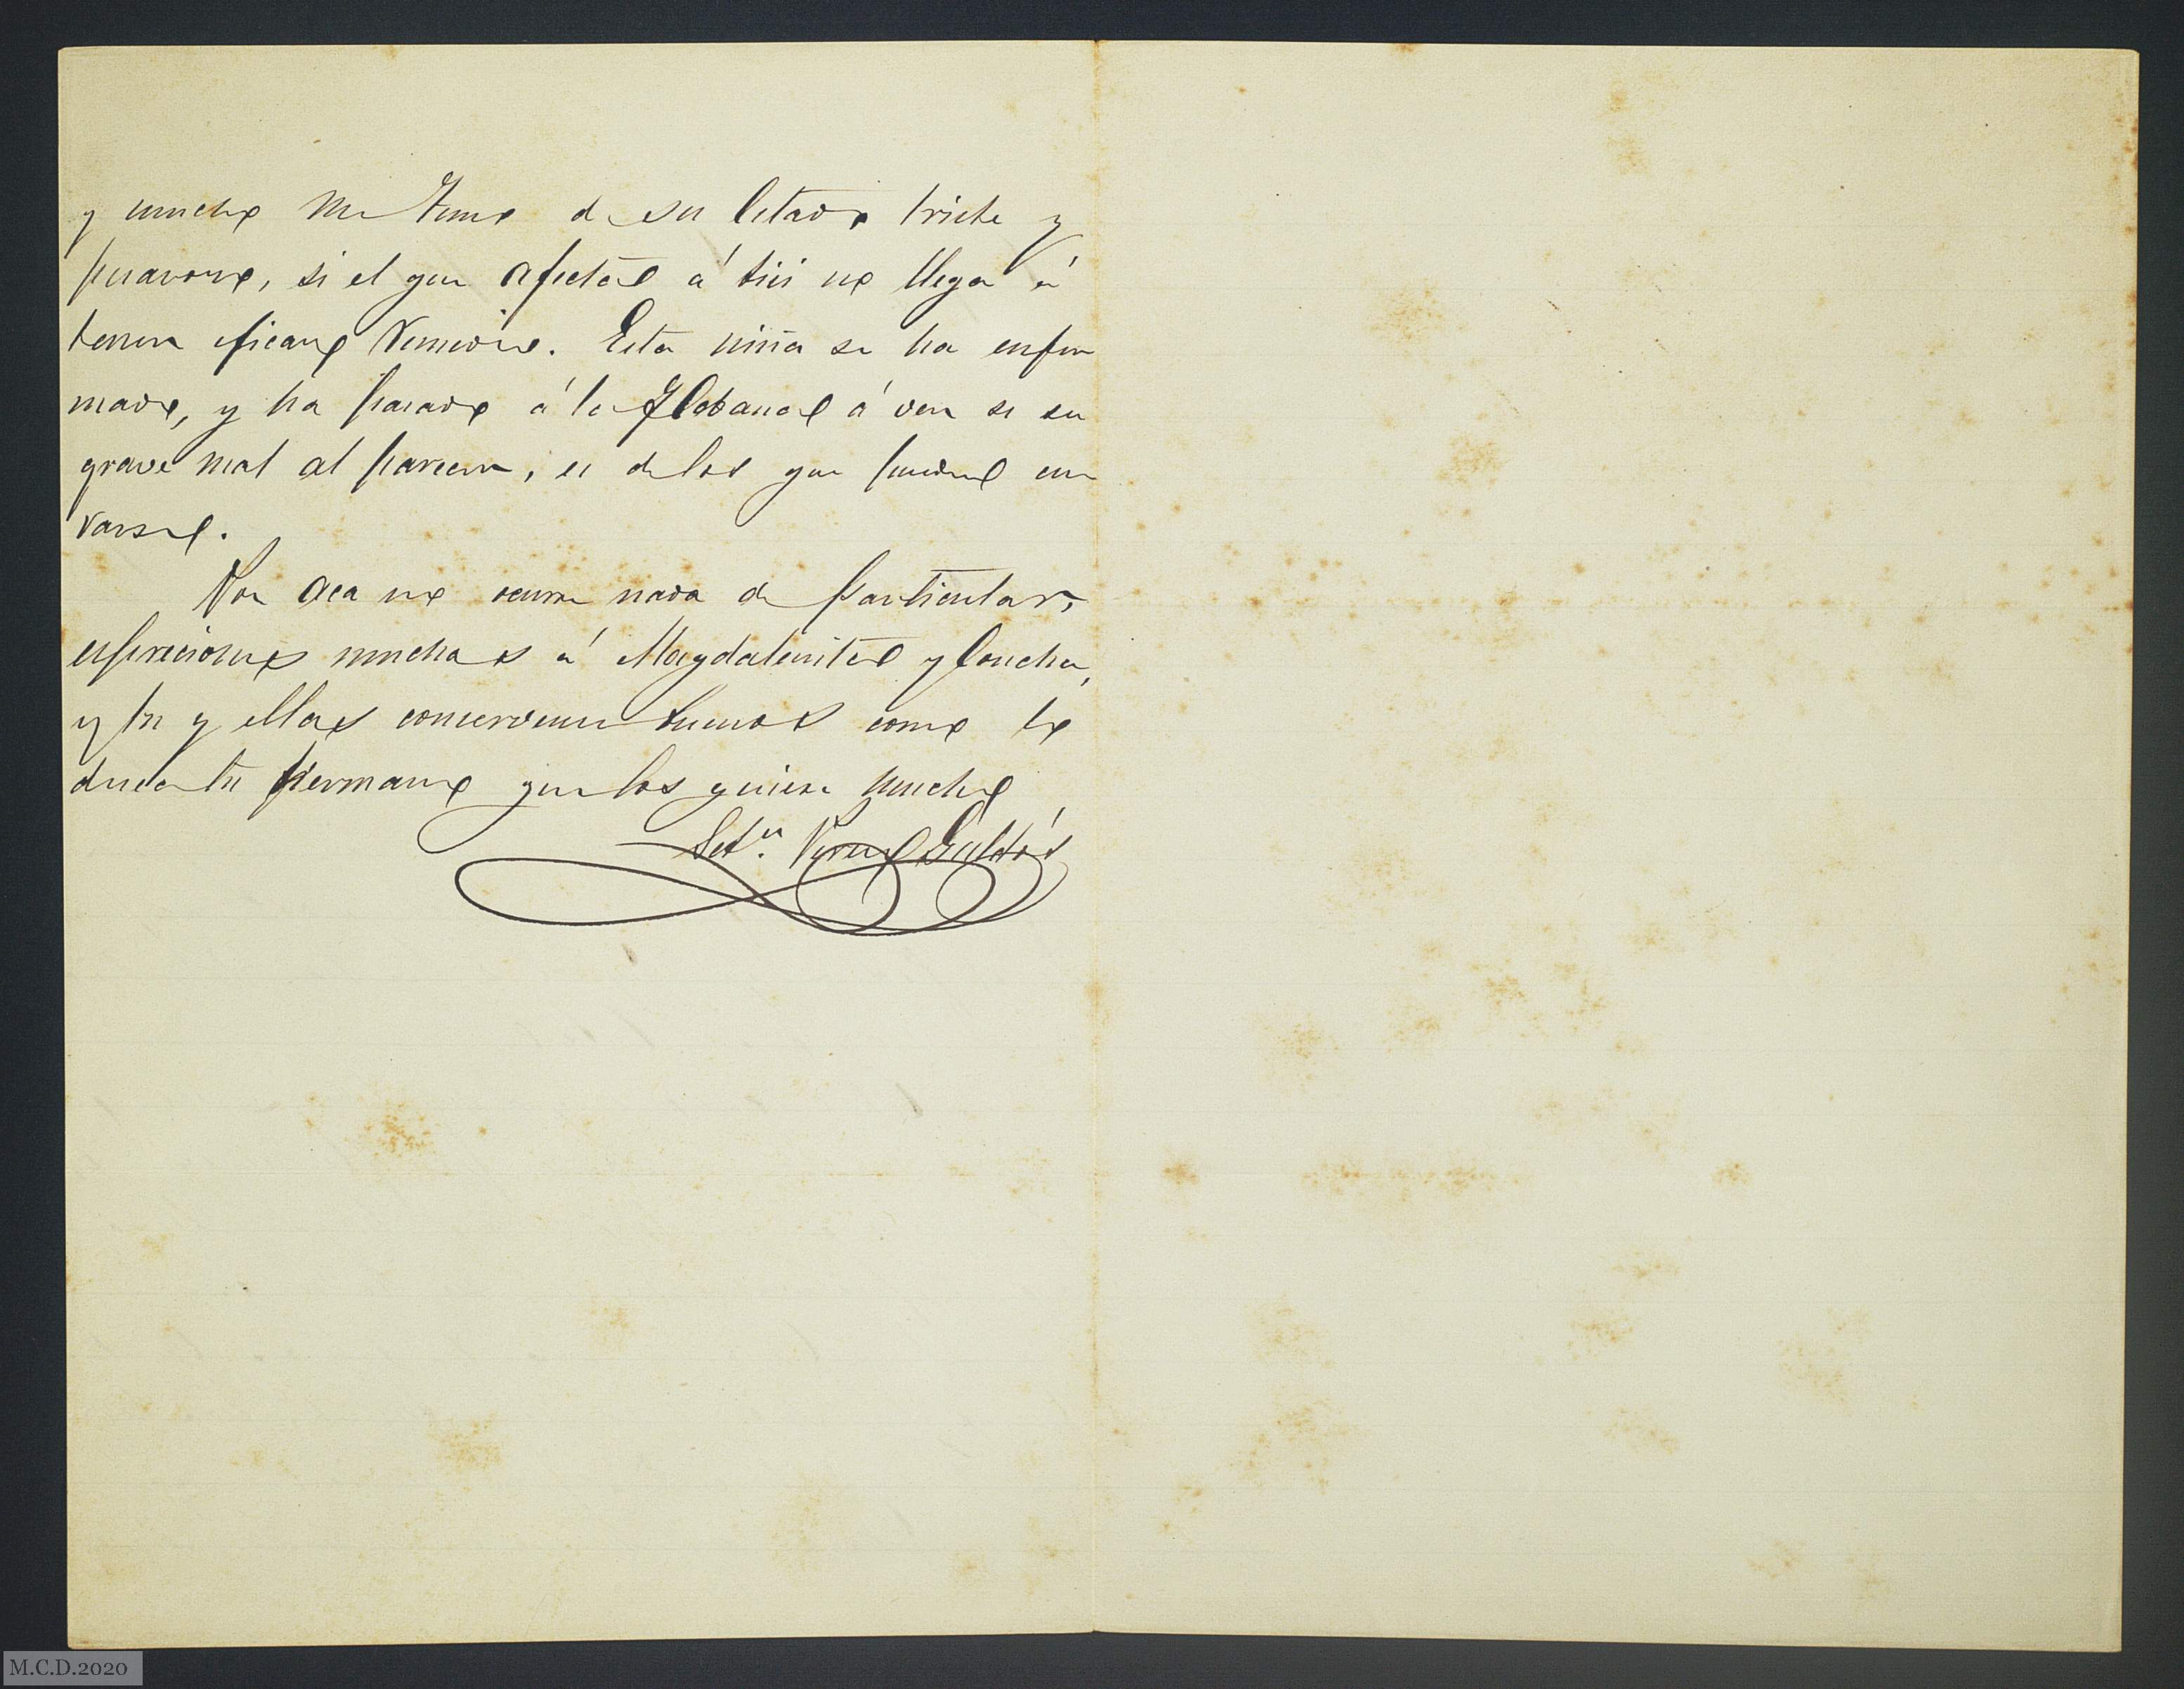 y mucho me temo de su estado triste y
pesaroso, si el que afecta á Sisi no llega á
tener eficaz remedio. Esta niña se ha enfer
mado, y ha pasado á la Habana á ver si su
grave mal al parecer, es de los que pueden cu
rarse.
Por aca no ocurre nada de particular,
espresiones muchas á Magdalenita y Concha,
y tu y ellas conservense buenos como lo
desea tu hermano que los quiere mucho
Sebn. Perez Galdós
M.C.D.2020